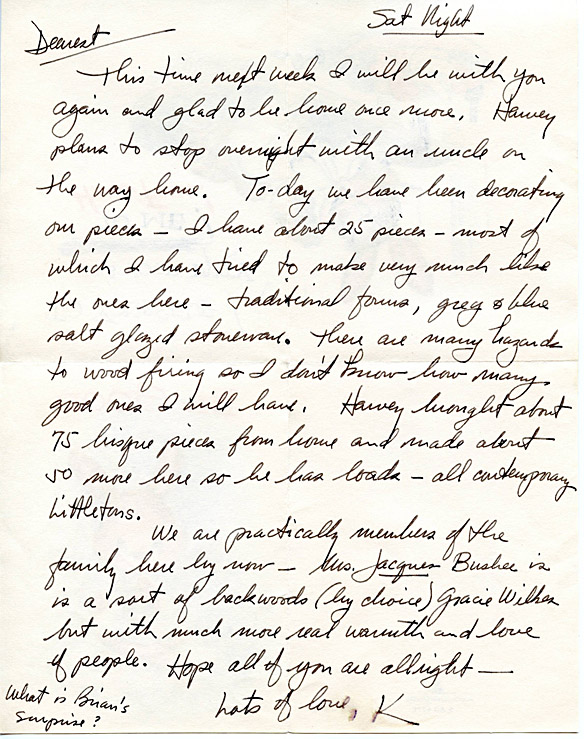 Sat Night
Dearest
This time next week I will be with you
again and glad to be home once more. Harvey
plans to stop overnight with an uncle on
the way home. To-day we have been decorating
our pieces – I have about 25 pieces – most of
which I have tried to make very much like
the ones here – traditional forms, grey & blue
salt glazed stoneware. There are many hazards
to wood firing so I don't know how many
good ones I will have. Harvey brought about
75 bisque pieces from home and made about
50 more here so he has loads – all contemporary
Littletons.
We are practically members of the
family here by now – Mrs. Jacques Bushee is
is a sort of backwoods (by choice) Gracie
but with much more real warmth and love
of people. Hope all of you are allright —
Lots of love, K
What is Brian's
surprise?